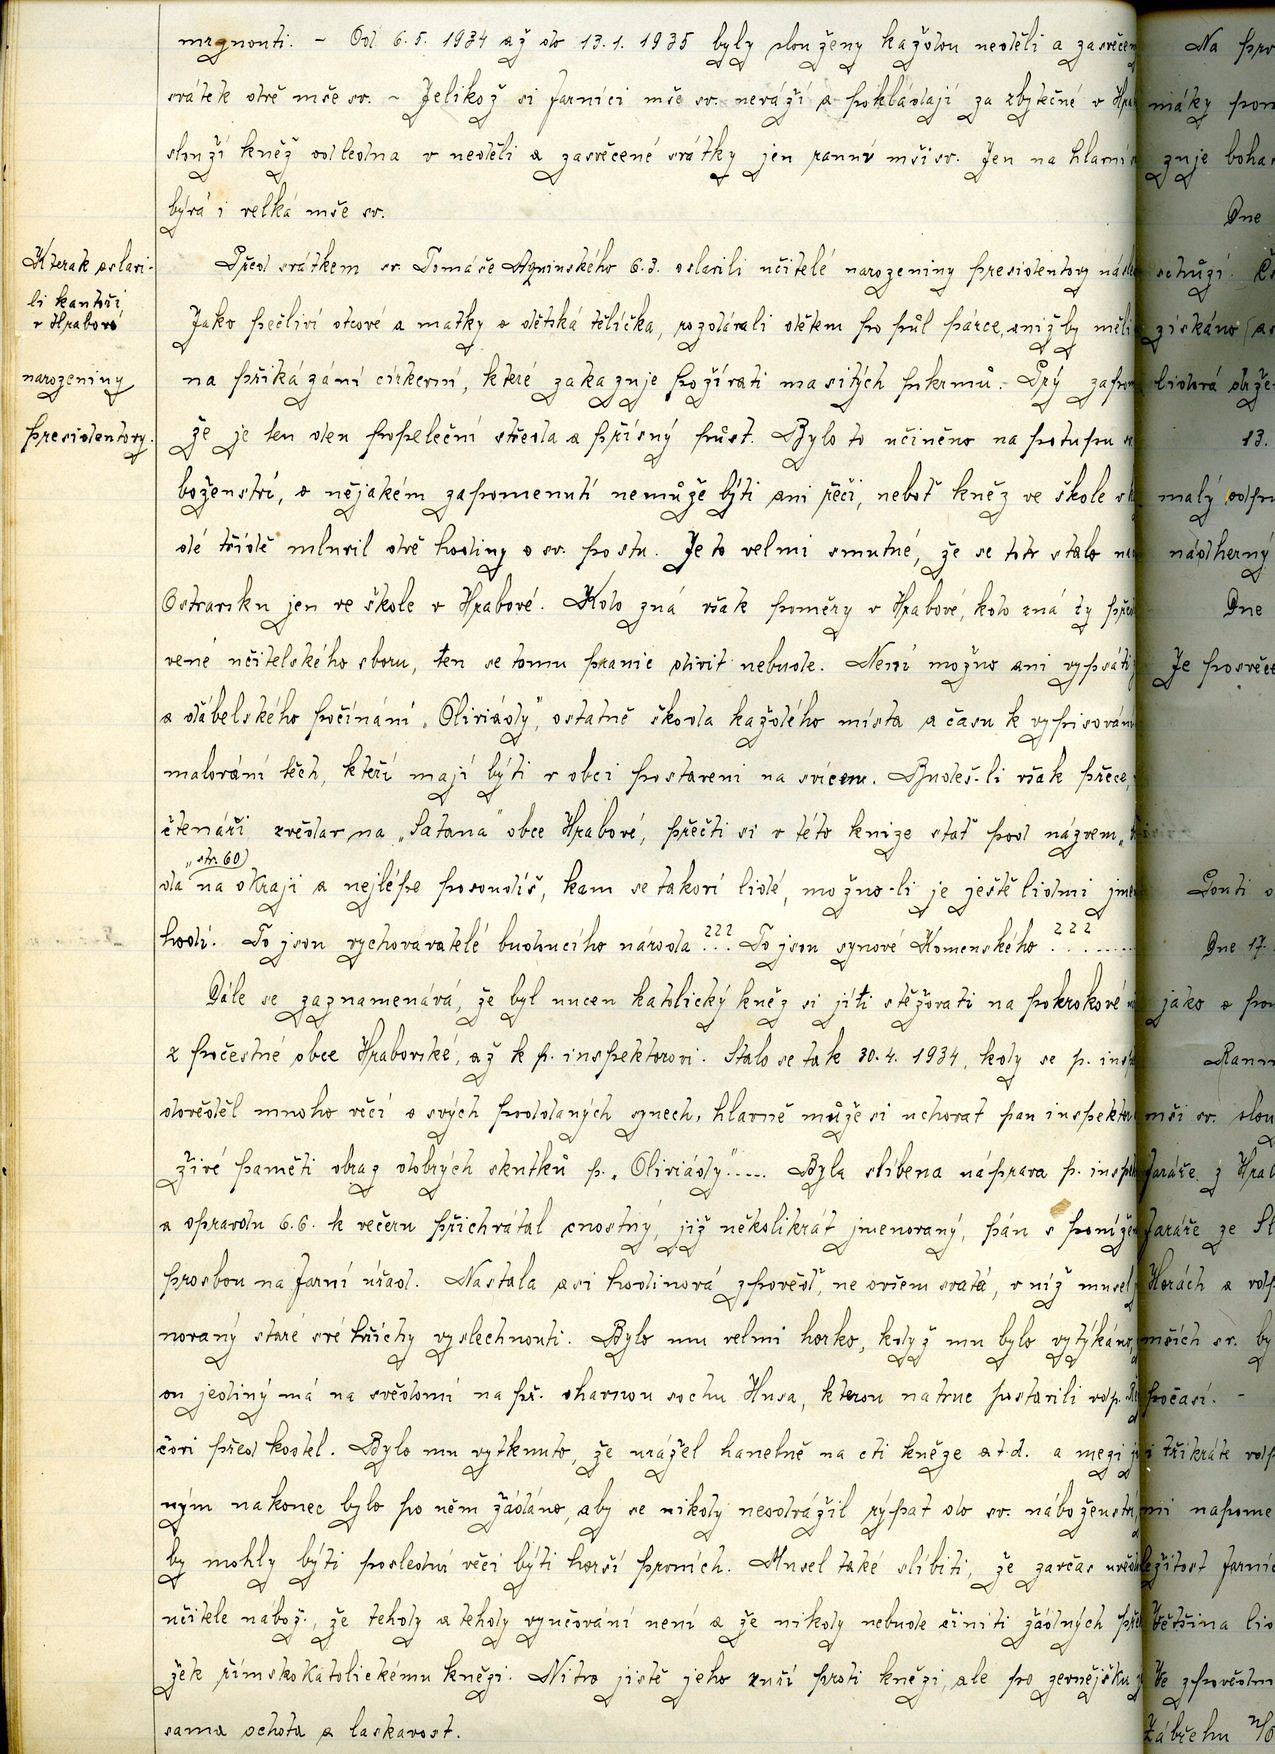 mrznouti. - Od 6.5. 1934 až do 13.1. 1935 byly slouženy každou neděli a zasvěcen
svátek dvě mše sv. - Jelikož si farníci mše sv. neváží a pokládají za zbytečné v Hra
slouží kněz od ledna v neděli a zasvěcené svátky jen ranní mši sv. Jen na hlavní
bývá i velká mše sv.
Kterak oslavi-
li kantoři
v Hrabové
narozeniny
presidentovy.
Před svátkem sv. Tomáše Aquinského 6.3. oslavili učitelé narozeniny presidentovy násle
Jako pečliví otcové a matky o dětská tělíčka, rozdávali dětem po půl párce, aniž by měli
na přikázání církevní, které zakazuje požívati masitých pokrmů. - Prý zapom
že je ten den popeleční středa a přísný půst. Bylo to učiněno na potupu
boženství, o nějakém zapomenutí nemůže býti ani řeči, neboť kněz ve škole v
dé třídě mluvil dvě hodiny o sv. postu. Je to velmi smutné, že se toto stalo na
Ostravsku jen ve škole v Hrabové. Kdo zná však poměry v Hrabové, kdo zná ty
vené učitelského sboru, ten se tomu pranic divit nebude. Není možno ani vypsáti
a ďábelského počínání „Oliviády", ostatně škoda každého místa a času k vypisování
malování těch, kteří mají býti v obci postaveni na svícen. Budeš-li však přece,
čtenáři zvědav na „Satana" obce Hrabové, přečti si v této knize stať pod názvem „
„str. 60)
da na okraji a nejlépe posoudíš, kam se takoví lidé, možno-li je ještě lidmi jmen
hodí. To jsou vychovávatelé budoucího národa ??? To jsou synové Komenského ???......
Dále se zaznamenává, že byl nucen katolický kněz si jíti stěžovati na pokrokové
z počestné obce Hrabovské, až k p. inspektorovi. Stalo se tak 30.4. 1934, kdy se p. insp
dověděl mnoho věcí o svých poddaných synech, hlavně může si uchovat pan inspektor
živé paměti obraz dobrých skutků p. „Oliviády"..... Byla slíbena náprava p. inspek
a opravdu 6.6. k večeru přichvátal cnostný, již několikrát jmenovaný, pán s poníže
prosbou na farní úřad. Nastala asi hodinová zpověď, ne ovšem svatá, v níž musel
novaný staré své hříchy vyslechnouti. Bylo mu velmi horko, když mu bylo vytýkáno,
on jediný má na svědomí na př. ohavnou sochu Husa, kterou na truc postavili odp.
čovi před kostel. Bylo mu vytknuto, že urážel hanebně na cti kněze atd. a mezi
ným nakonec bylo po něm žádáno, aby se nikdy neodvážil rýpat do sv. náboženství,
by mohly býti poslední věci býti horší prvních. Musel také slíbiti, že zavčas uvědo
učitele nábož., že tehdy a tehdy vyučování není a že nikdy nebude činiti žádných pře
žek římskokatolickému knězi. Nitro jistě jeho zuří proti knězi, ale po zevnějšku
sama ochota a laskavost.
Na
niáky
zuje
Dne
setrůzí.
získáno
lidová
13.
malý
nádherný
Dne
Je
Pouti
Dne 17.
jako o
Ranní
mši sv.
faráře z
faráře ze
Horách a
mších sv. by
počasí. -
i třikráte
mi
ležitost
Většina
Ve
Zábřehu